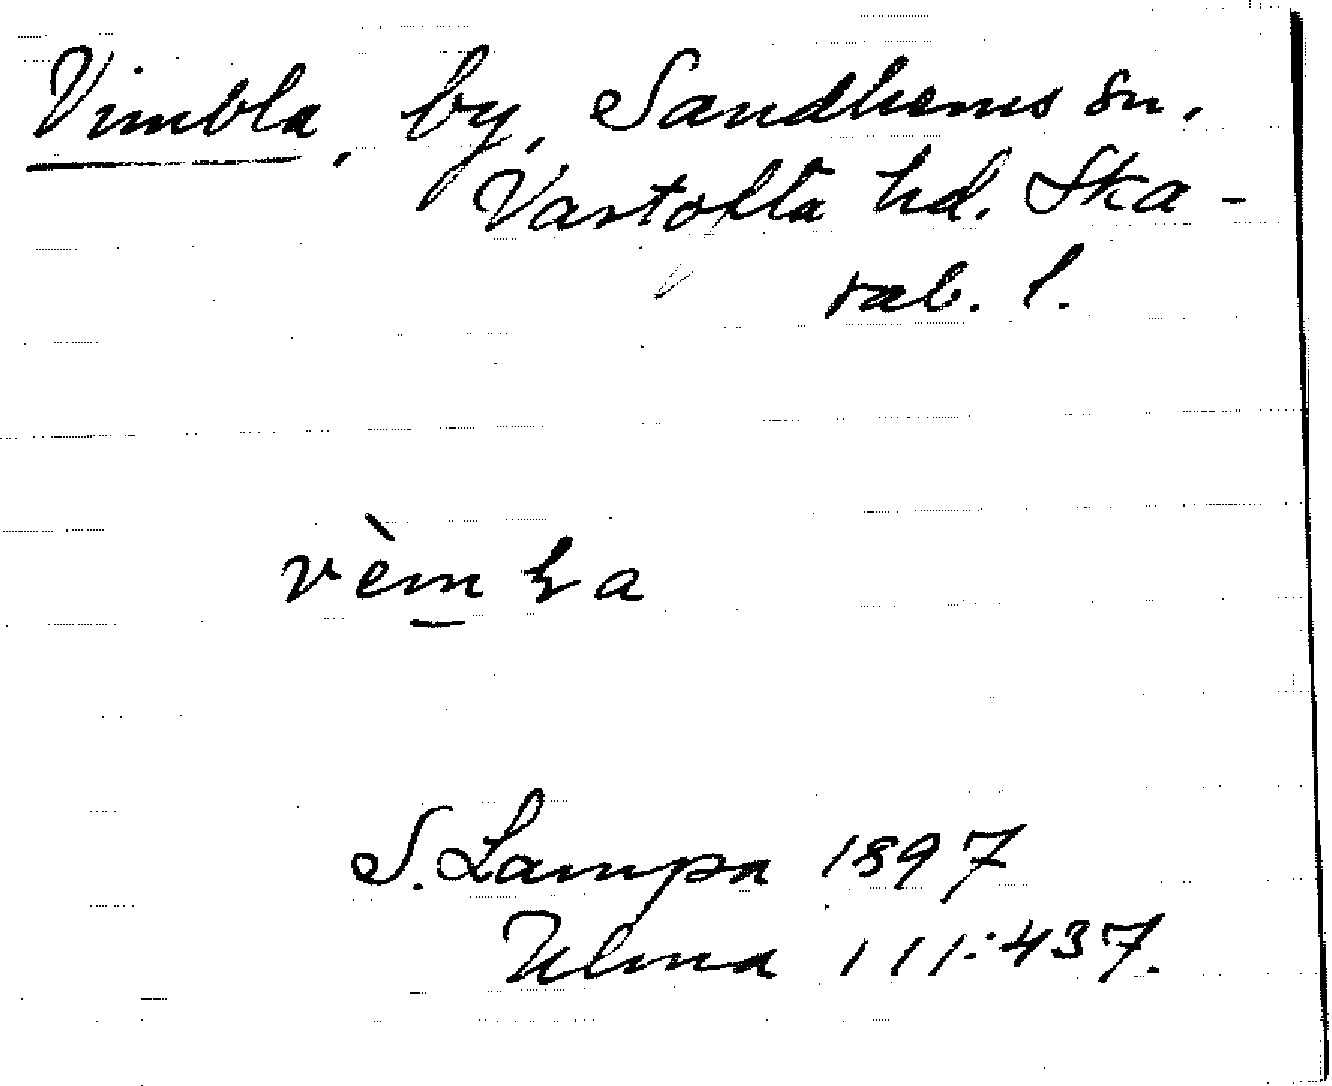 Vimbla, by, Sandhems sn,
Vartofta hd. Ska-
rab. l.
vèm
S. Lampa 1897
Ulma 111:437.